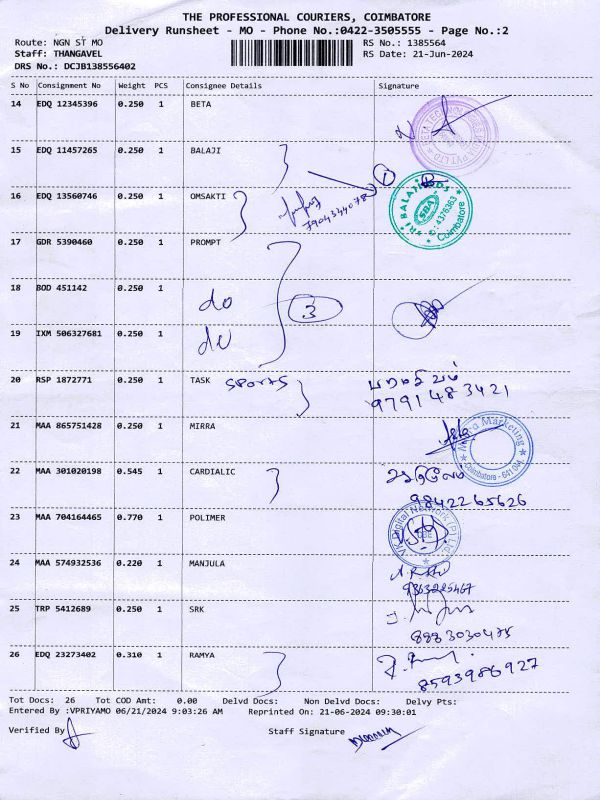 THE PROFESSIONAL COURIERS, COIMBATORE
Delivery Runsheet - MO - Phone No.:0422-3505555 - Page No.:2
Route: NGN ST MO RS No.: 1385564
Staff: THANGAVEL RS Date: 21-Jun-2024
DRS No.: DCJB138556402
S No Consignment No Weight PCS Consignee Details Signature
14 EDQ 12345396 0.250 1 BETA
15 EDQ 11457265 0.250 1 BALAJI
1
16 EDQ 13560746 0.250 1 OMSAKTI
7904344078
SRI BALAJI FOODS SBA 4376363 Coimbatore
17 GDR 5390460 0.250 1 PROMPT
18 BOD 451142 0.250 1 do 3
19 IXM 506327681 0.250 1 do
20 RSP 1872771 0.250 1 TASK SPORTS
9791483421
21 MAA 865751428 0.250 1 MIRRA
Marketing Coimbatore - 641 041
22 MAA 301020198 0.545 1 CARDIALIC
9842265626
23 MAA 704164465 0.770 1 POLIMER
VK Digital Network (P) Ltd
24 MAA 574932536 0.220 1 MANJULA
9363225467
25 TRP 5412689 0.250 1 SRK
8883030475
26 EDQ 23273402 0.310 1 RAMYA
8593986927
Tot Docs: 26 Tot COD Amt: 0.00 Delvd Docs: Non Delvd Docs: Delvy Pts:
Entered By :VPRIYAMO 06/21/2024 9:03:26 AM Reprinted On: 21-06-2024 09:30:01
Verified By Staff Signature